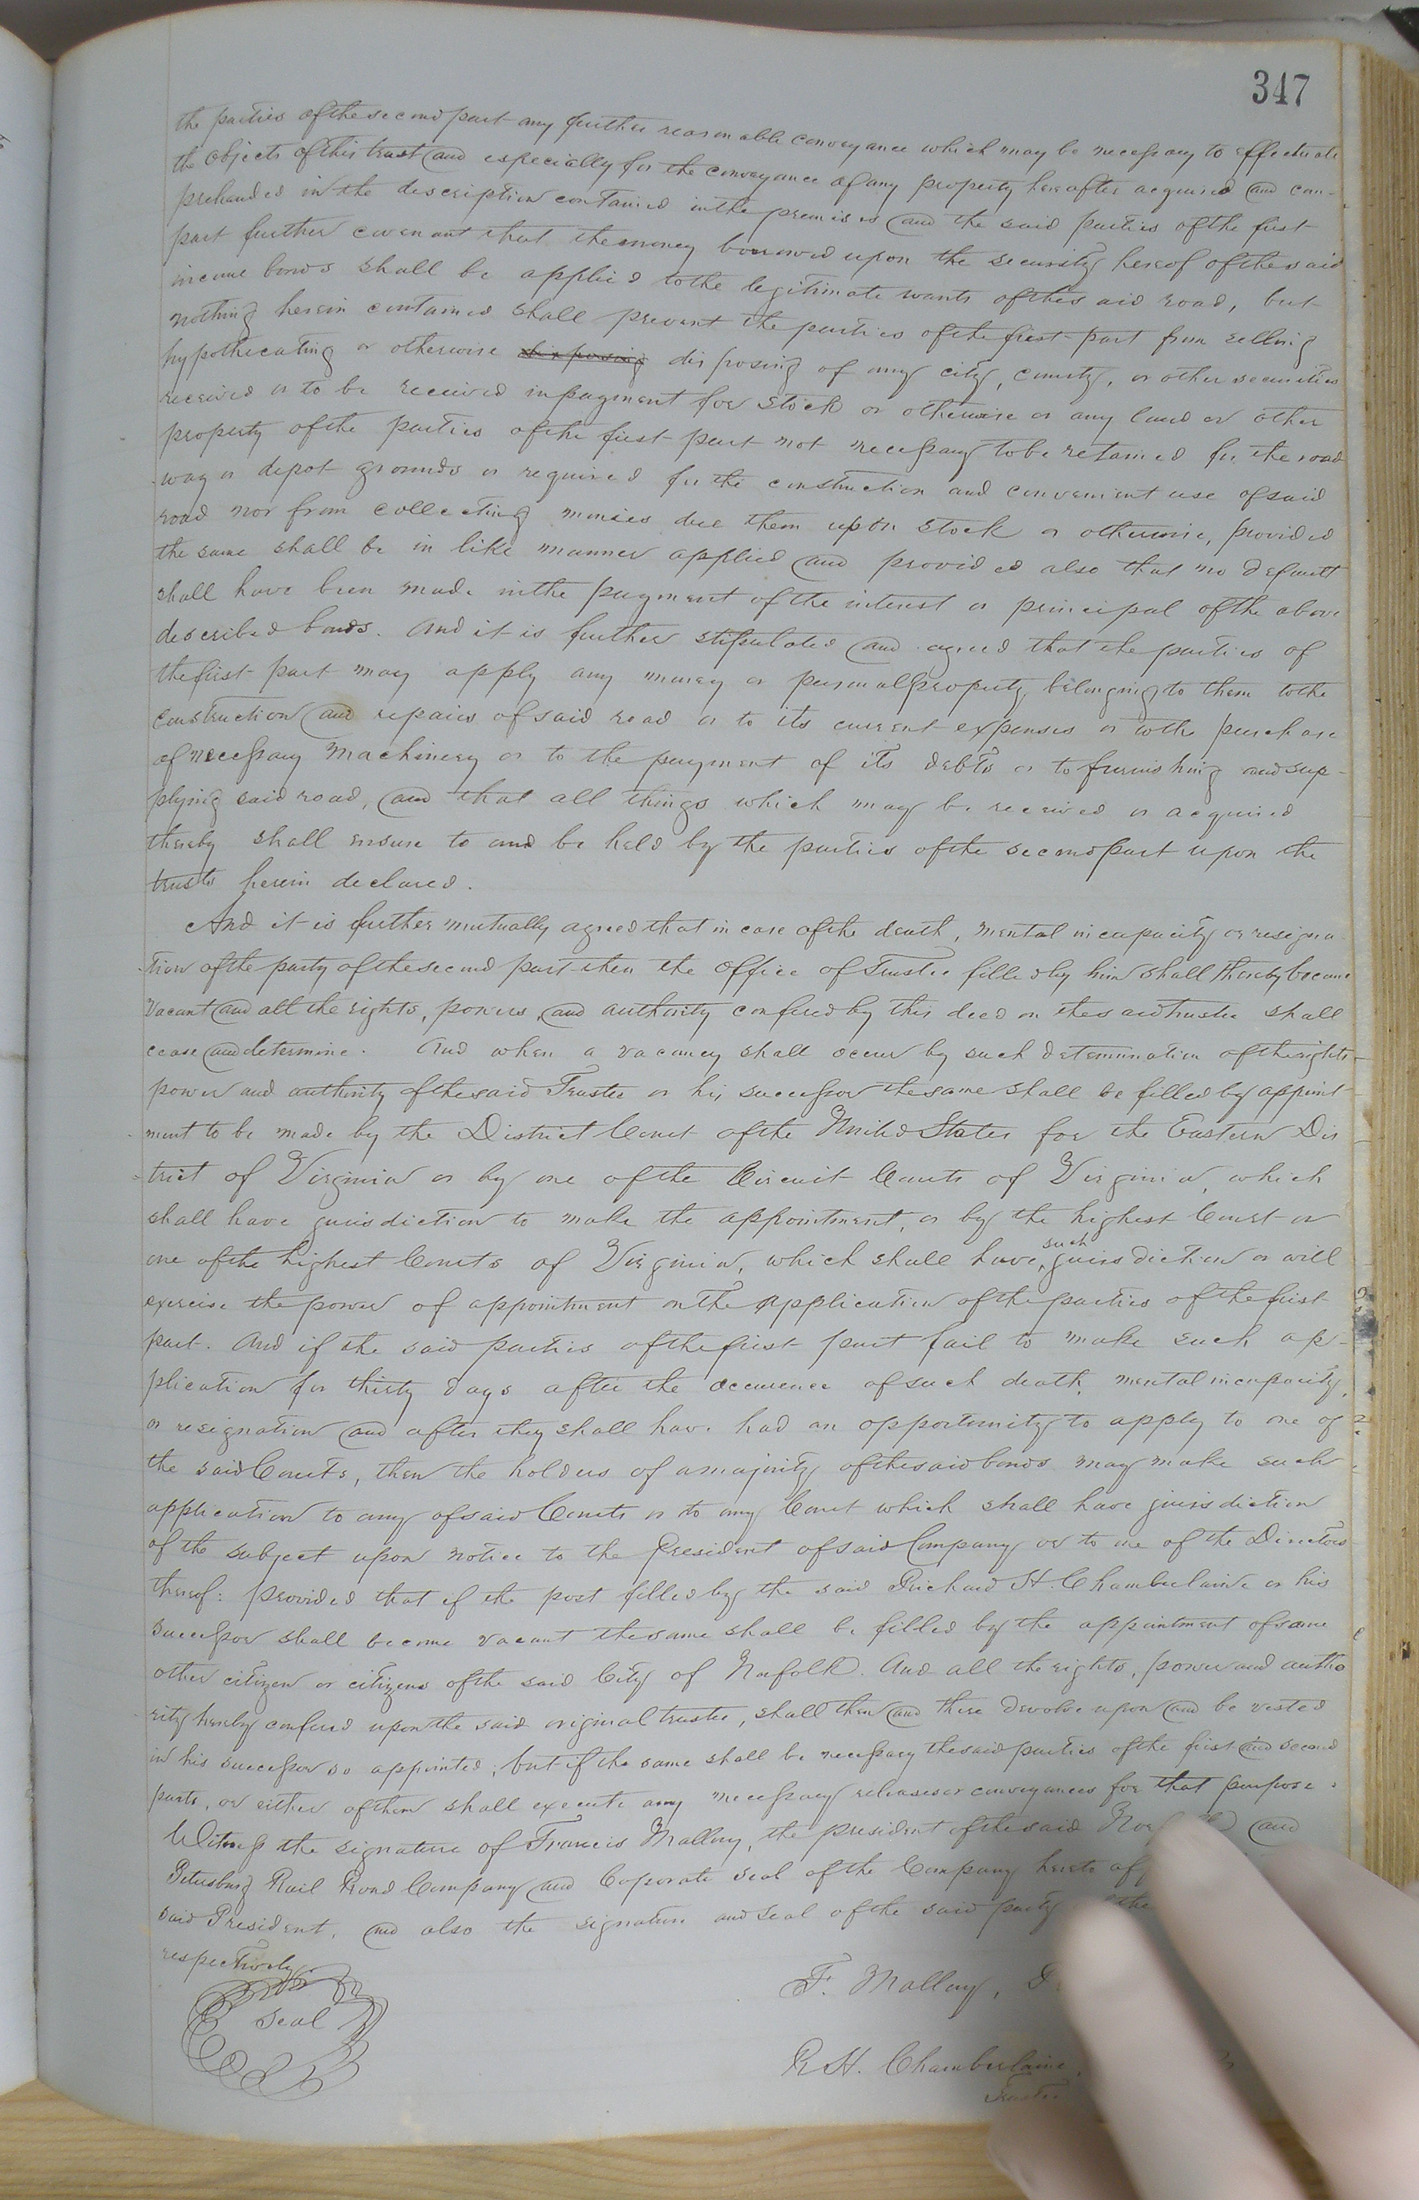 347
the parties of the second part any further reasonable conveyance which may be necessary to effectuate
the objects of this trust and especially for the conveyance of any property hereafter acquired and com-
prehended in the description contained in the premises and the said parties of the first
part further covenant that the money borrowed upon the security hereof of the said
income bonds shall be applied to the legitimate wants of the said road, but
nothing herein contained shall prevent the parties of the first part from selling
hypothecating or otherwise disposing disposing of any city, county, or other securities
received or to be received in payment for stock or otherwise or any land or other
property of the parties of the first part not necessary to be retained for the road
way or depot grounds or required for the construction and convenient use of said
road nor from collecting monies due them upon stock or otherwise, provided
the same shall be in like manner applied and provided also that no default
shall have been made in the payment of the interest or principal of the above
described bonds. And it is further stipulated and agreed that the parties of
the first part may apply any money or personal property belonging to them to the
construction and repairs of said road or to its current expenses or to the purchase
of necessary machinery or to the payment of its debts or to furnishing and sup-
plying said road, and that all things which may be received or acquired
thereby shall ensure to and be held by the parties of the second part upon the
trusts herein declared.
And it is further mutually agreed that in case of the death, mental incapacity or resigna
tion of the party of the second part then the office of Trustee filled by him shall thereby become
vacant and all the rights, powers, and authority confered by this deed on the said trustee shall
cease and determine. And when a vacancy shall occur by such determination of the rights
power and authority of the said Trustee or his successor the same shall be filled by appoint
ment to be made by the District Court of the United States for the Eastern Dis
trict of Virginia or by one of the Circuit Courts of Virginia, which
shall have jurisdiction to make the appointment, or by the highest Court or
one of the highest Courts of Virginia, which shall have, such jurisdiction or will
exercise the power of appointment on the application of the parties of the first
part. And if the said parties of the first part fail to make such ap-
plication for thirty days after the occurence of such death, mental incapacity,
or resignation and after they shall have had an opportunity to apply to one of
the said Courts, then the holders of a majority of the said bonds may make such
application to any of said Courts or to any Court which shall have jurisdiction
of the subject upon notice to the President of said Company or to one of the Directors
thereof: provided that if the post filled by the said Richard H. Chamberlaine or his
successor shall become vacant the same shall be filled by the appointment of some
other citizen or citizens of the said City of Norfolk. And all the rights, power and autho
rity hereby confered upon the said original trustee, shall then and there devolve upon and be vested
in his successor so appointed; but if the same shall be necessary the said parties of the first and second
parts, or either of them shall execute any necessary releases or conveyances for that purpose.
Witness the signature of Francis Mallory, the president of the said and
Petersburg Rail Road Company and Coporate seal of the Company hereto
said President, and also the signature and seal of the said party
respectively
F. Mallory,
Seal
R H. Chamberlaine
Trustee